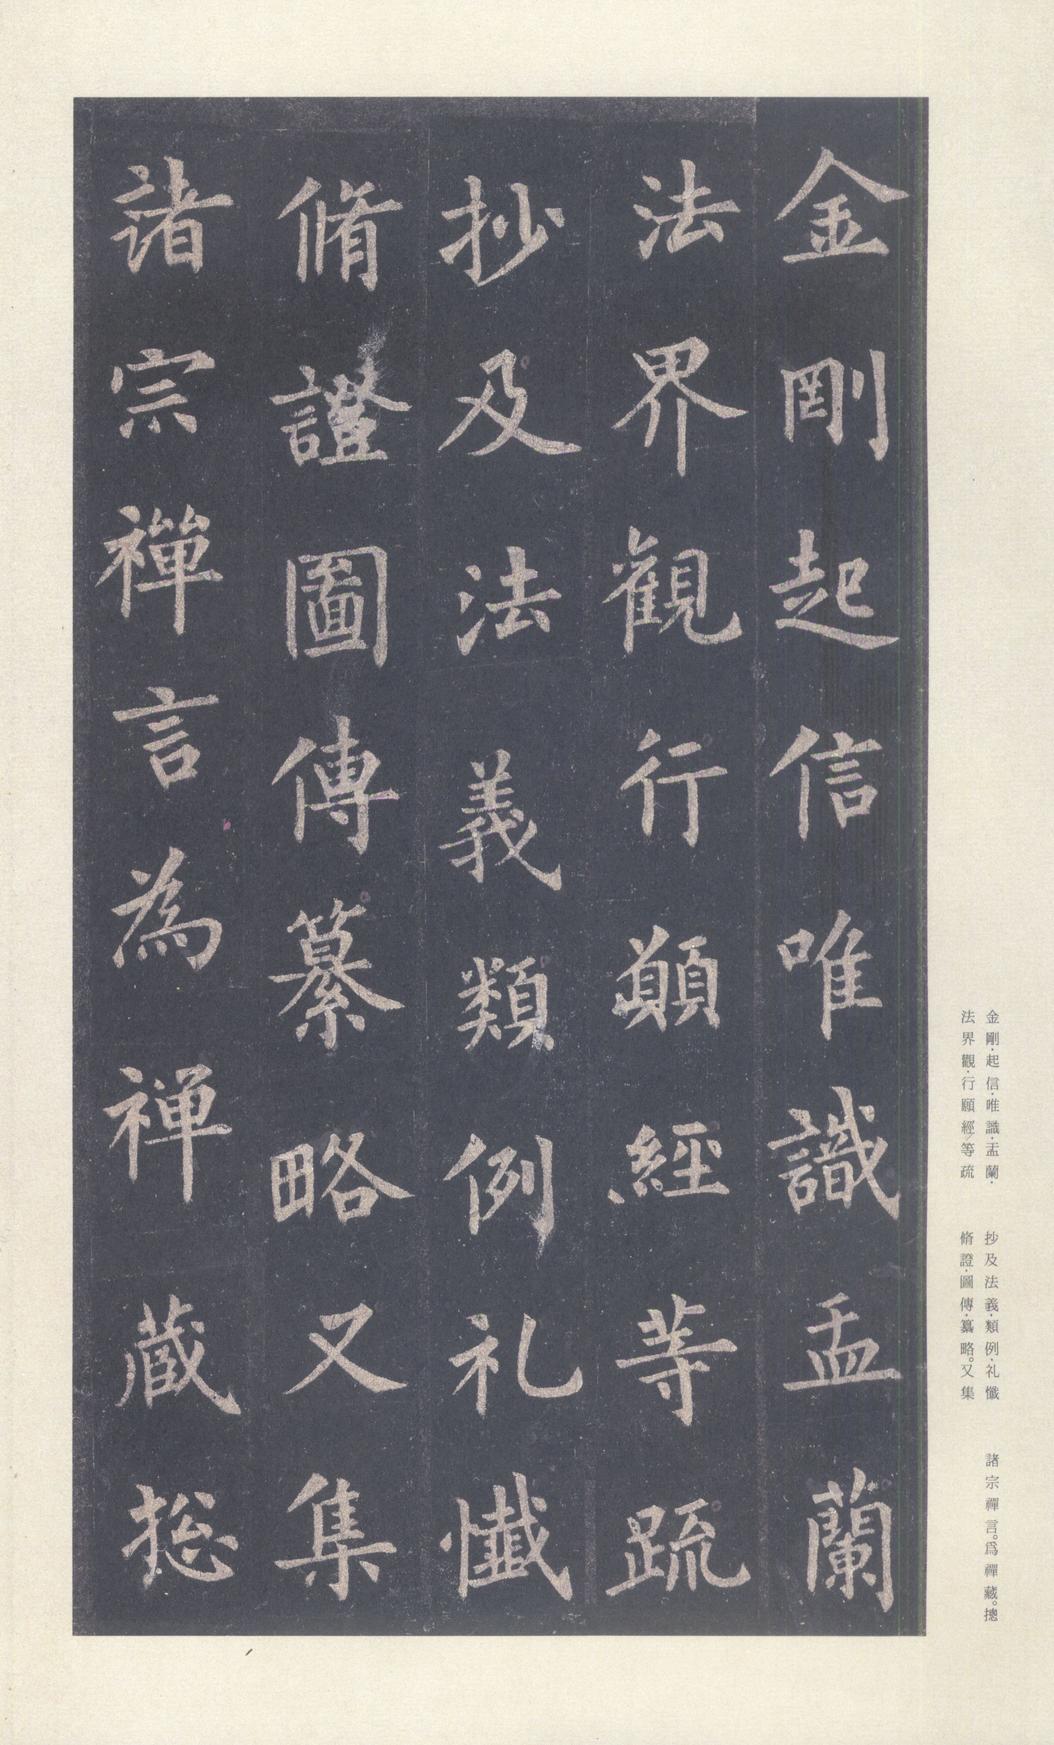 金剛起信唯識盂蘭
法界觀行願經等疏
抄及法義類例礼懺
脩證圖傳纂略又集
諸宗禪言為禪藏揔
金剛·起信·唯識·盂蘭·
法界觀·行願經等疏
抄及法義·類例·礼懺
脩證·圖傳·纂略。又集
諸宗禪言。爲禪藏。摠